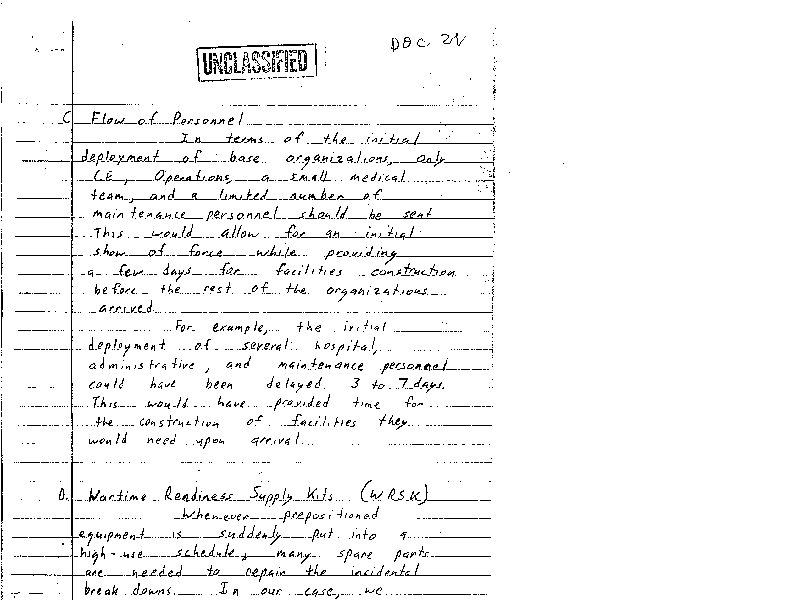 DOC 21
UNCLASSIFIED
C Flow of Personnel
In terms of the initial
deployment of base organizations, only
CE, Operations, a small medical
team, and a limited number of
maintenance personnel should be sent
This would allow for an initial
show of force while providing
a few days for facilities construction
before the rest of the organizations
arrived.
For example, the initial
deployment of several hospital,
administrative, and maintenance personnel
could have been delayed 3 to 7 days.
This would have provided time for
the construction of facilities they
would need upon arrival.
D. Wartime Readiness Supply Kits (WRSK)
Whenever prepositioned
equipment is suddenly put into a
high-use schedule, many spare parts
are needed to repair the incidental
break downs. In our case, we